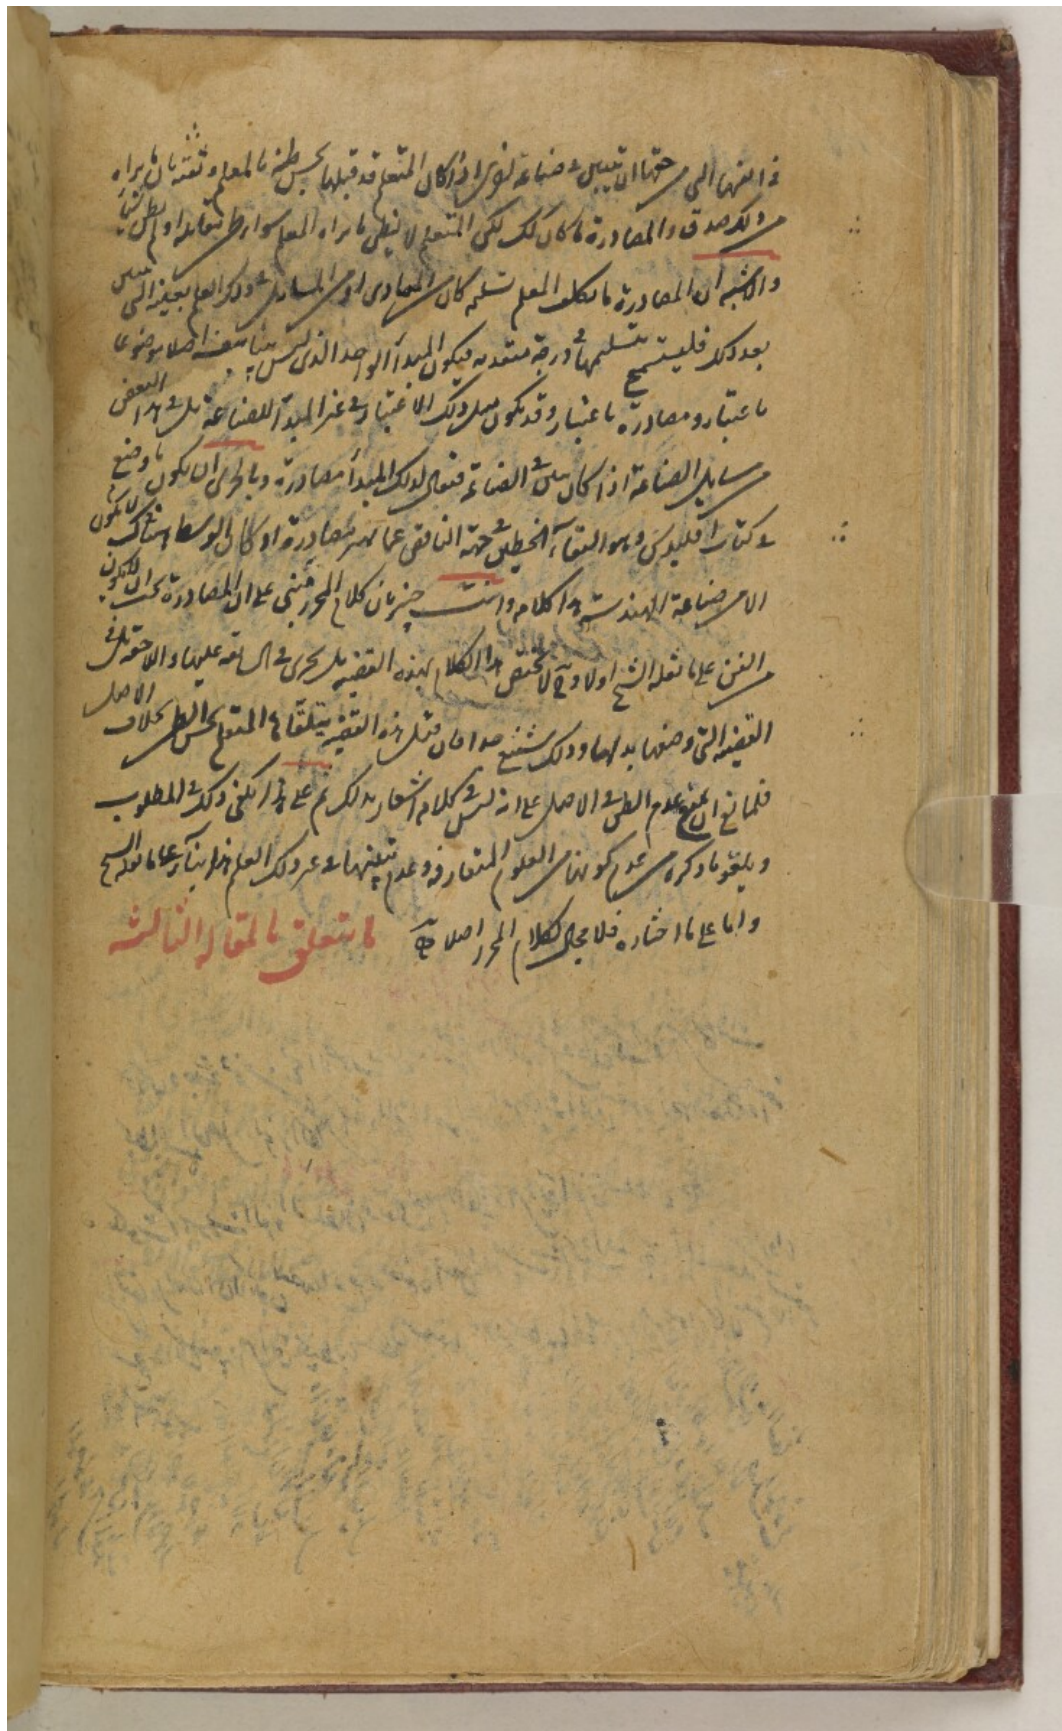 في انفسها التي من حقها ان تتبين في صناعة اخرى اذا كان المتعلم قد قبلها بحسن ظنه بالمعلم وثقته بان ما يراه
من ذلك صدق والمصادرة ما كان كذلك لكن المتعلم لا يظن ما يراه المعلم سواء ظن مقابله او لم يظن شيئا
والاشبه ان المصادرة ما يكلف المعلم تسليمه كان من المبادى او من المسايل في ذلك العلم بعينه التي تتبين
بعد ذلك فليستسمح بتسليمها في درجة متقدمه فيكون المبدأ الواحد الذي ليس بينا بنفسه اصلا موضوعا
باعتبار ومصادرة باعتبار وقد يكون مثل ذلك الاعتبار في غير المبدأ للصناعة بل في البعض
من مسايل الصناعة اذا كان في الصناعة فيقال لذلك المبدأ مصادرة وبالحرى ان يكون ما وضع
في كتاب اقليدس وهو التقاء الخطين في جهة الناقص عما مصادرة اذ كان الوسط هناك لا يكون
الا من صناعة الهندسة هذا كلامه وانت خبير بان كلام المحرر مبني على ان المصادرة يجب ان لا يكون
من الفن على ما نقله الشيخ اولا وح لا يختص هذا الكلام بهذه القضيه بل يجرى في السابقه عليها واللاحقة بل في
القضية التي وضعها بدلها وذلك شنيع جدا فان قيل هذه القضية يتلقاها المتعلم بحسن الظن بخلاف الاصل
فلمانع ان يمنع عدم الظن في الاصل على انه ليس في كلامه اشعار بذلك نعم على هذا يكفى ذلك في المطلوب
ويلغو ما ذكره من عدم كونها من العلوم المتعارفه وعدم تبينها في غير ذلك العلم هذا بناء على ما نقله الشيخ
واما على ما اختاره فلا مجال لكلام المحرر اصلا ما يتعلق بالمقالة الثالثه